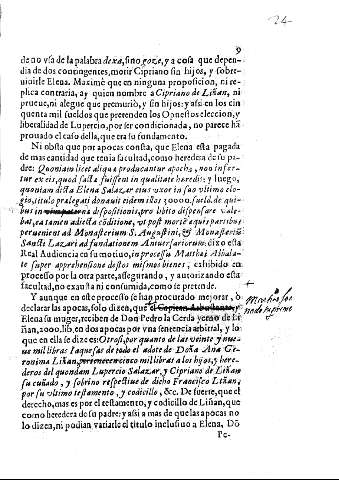 24
9
de no vsa de la palabra dexa, sino goze, y a cosa que depen-
dia de dos contingentes, morir Cipriano sin hijos, y sobre-
uiuirle Elena. Maximè que en ninguna proposicion, ni re-
plica contraria, ay quien nombre a Cipriano de Liñan, ni
prueue, ni alegue que premuriò, y sin hijos: y assi en los cin
quenta mil sueldos que pretenden los Opuestos eleccion, y
liberalidad de Lupercio, por ser condicionada, no parece há
prouado el caso della, que era su fundamento.
Ni obsta que por apocas consta, que Elena està pagada
de mas cantidad que tenia facultad, como heredera de su pa-
dre: Quoniam licet aliqua producantur apocha, non infer-
tur ex eis, quod facta fuissent in qualitate heredis: y luego,
quoniam dicta Elena Salazar eius vxor in suo vltimo elo-
gio, titulo prælegati donauit eidem illos 32000. sueld. de qui-
bus in dispositionis, pro libito disponere vale-
bat, ea tamen adiecta cõditione, vt post mortẽ aquis partibus
perueniant ad Monasterium S. Augustini, & Monasteriũ
Sancti Lazari ad fundationem Aniuersariorum: dixo esta
Real Audiencia en su motiuo, in processu Matthæi Abbala-
te super apprehensione destos mismos bienes, exhibido en
processo por la otra parte, assegurando, y autorizando esta
facultad, no exausta ni consumida, como se pretende.
Y aunque en este processo se han procurado mejorar, ò
declarar las apocas, solo dizen, que el
Elena su muger, reciben de Don Pedro la Cerda yerno de Li-
ñan, 2000. lib. en dos apocas por vna sentencia arbitral, y lo
que en ella se dize es: Otrosi, por quanto de las veinte y nue-
ue mil libras Iaquesas de todo el adote de Doña Ana Ge-
ronima Liñan, a los hijos, y here-
deros del quondam Lupercio Salazar, y Cipriano de Liñan
su cuñado, y sobrino respectiue de dicho Francisco Liñan,
por su vltimo testamento, y codicillo, &c. De suerte, que el
derecho, mas es por el testamento, y codicillo de Liñan, que
como heredera de su padre: y assi a mas de que las apocas no
lo dizen, ni podian variarle el titulo inclusiuo a Elena, Dõ
Pe-